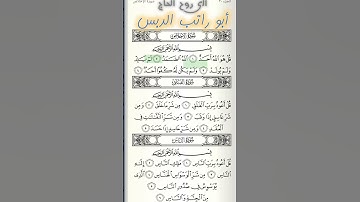 الى روح الحاج
أبو راتب الدبس
سورة الإخلاص
بسم الله الرحمن الرحيم
قل هو الله أحد ١ الله الصمد ٢ لم يلد
ولم يولد ٣ ولم يكن له كفوا أحد ٤
سورة الفلق
بسم الله الرحمن الرحيم
قل أعوذ برب الفلق ١ من شر ما خلق ٢
ومن شر غاسق إذا وقب ٣ ومن شر النفاثات في
العقد ٤ ومن شر حاسد إذا حسد ٥
سورة الناس
بسم الله الرحمن الرحيم
قل أعوذ برب الناس ١ ملك الناس ٢ إله
الناس ٣ من شر الوسواس الخناس ٤ الذي
يوسوس في صدور الناس ٥
من الجنة والناس ٦